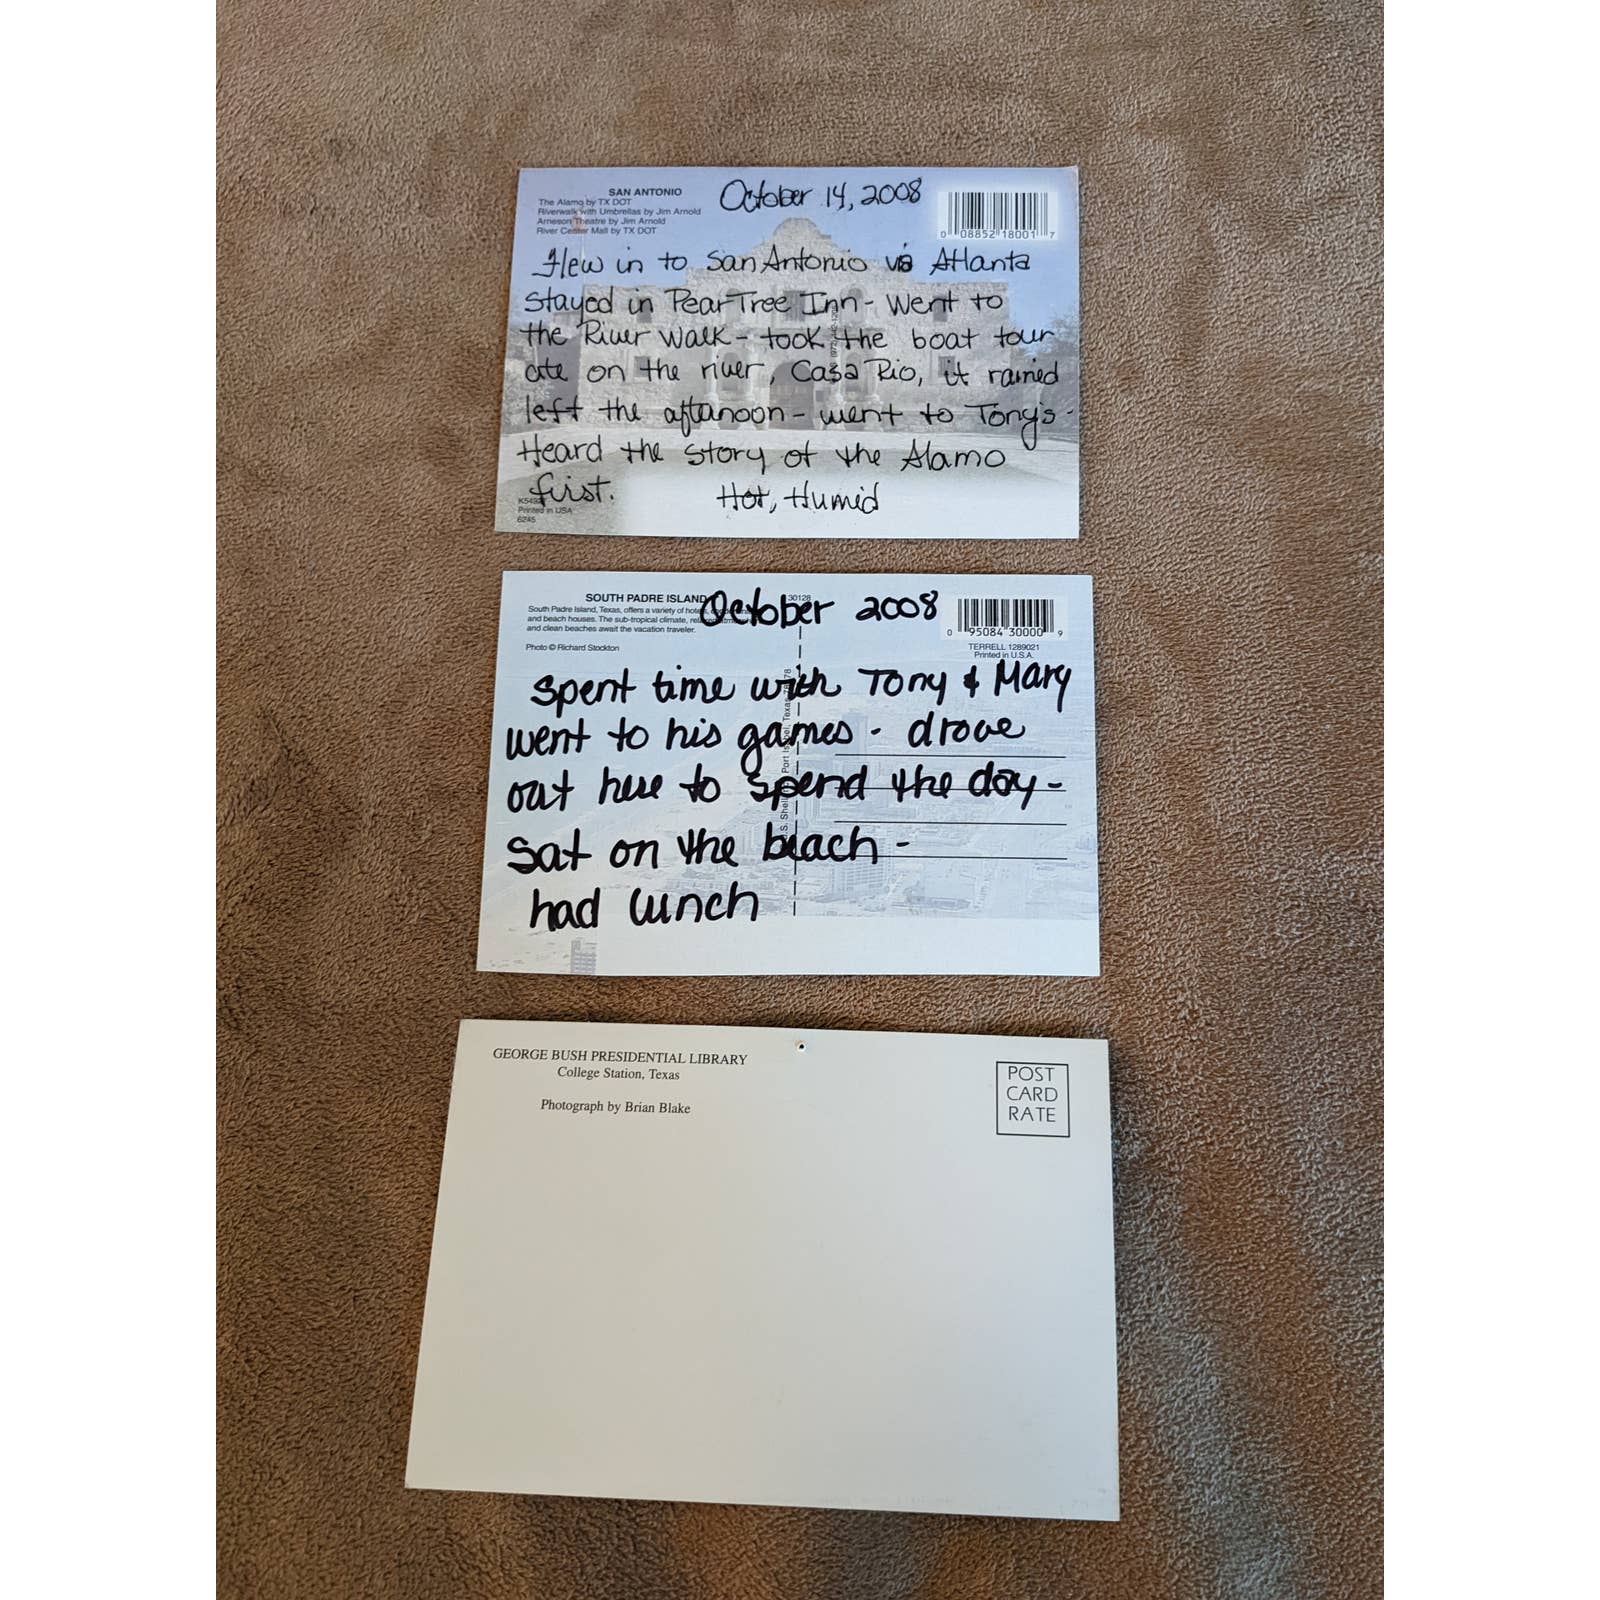 SAN ANTONIO
The Alamo by TX DOT
Riverwalk with Umbrellas by Jim Arnold
Arneson Theatre by Jim Arnold
River Center Mall by TX DOT
October 14, 2008
0 08852 18001 7
Flew in to San Antonio via Atlanta
stayed in Pear Tree Inn - Went to
the River Walk - took the boat tour
ate on the river, Casa Rio, it rained
left the afternoon - went to Tony's -
Heard the story of the Alamo
first. Hot, Humid
Printed in USA
6245
SOUTH PADRE ISLAND
October 2008
30128
South Padre Island, Texas, offers a variety of
and beach houses. The sub-tropical climate,
and clean beaches await the vacation traveler.
Photo © Richard Stockton
0 95084 30000 9
TERRELL 1289021
Printed in U.S.A.
Spent time with Tony & Mary
went to his games - drove
out here to spend the day -
Sat on the beach -
had lunch
GEORGE BUSH PRESIDENTIAL LIBRARY
College Station, Texas
Photograph by Brian Blake
POST
CARD
RATE